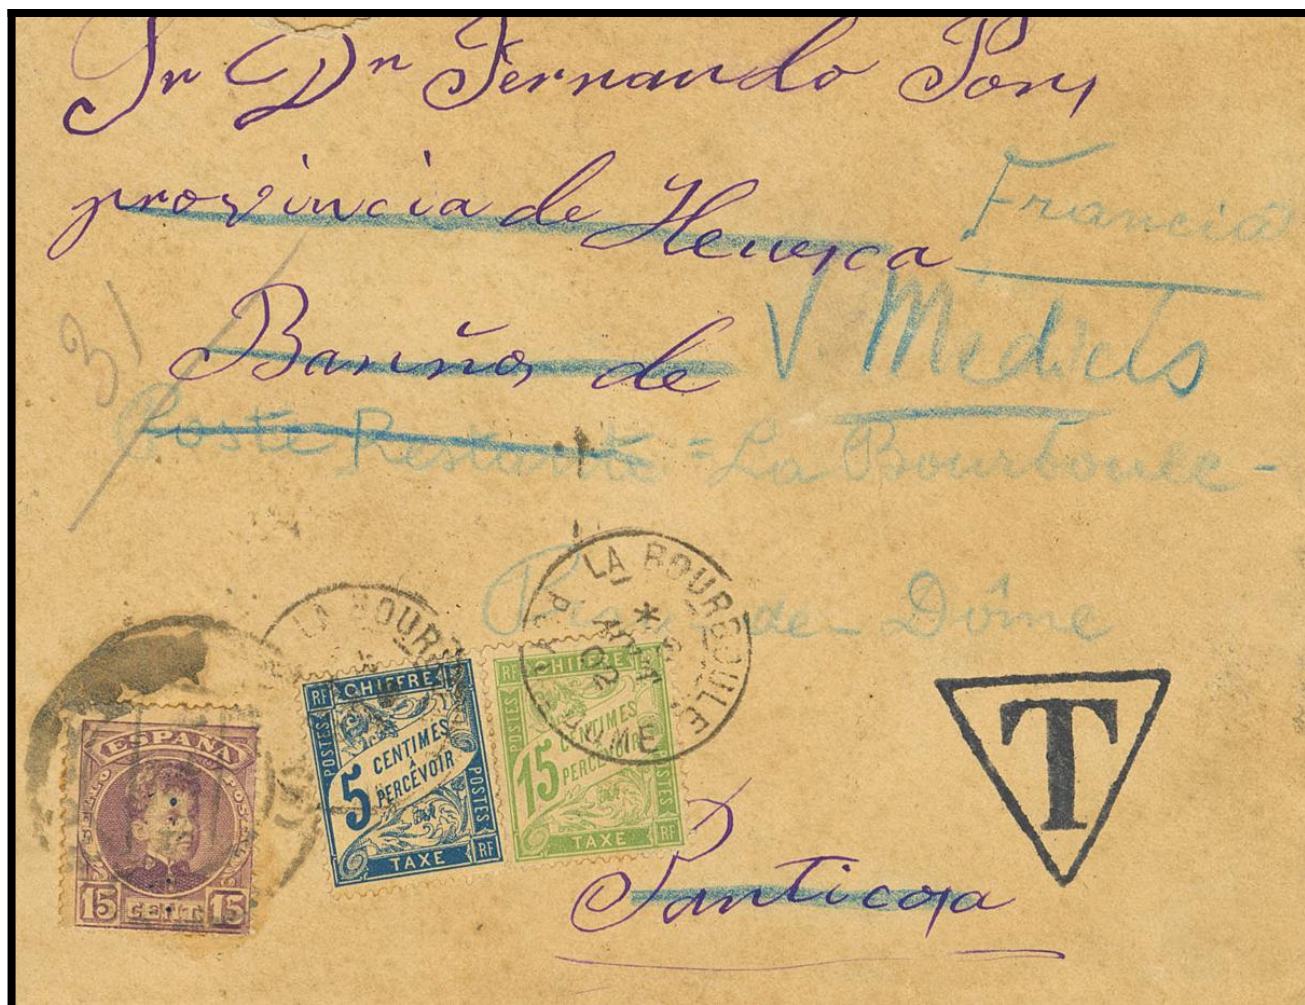 Sr Dn Fernando Pons
provincia de Huesca
Francia
Banños de
V Médicis
31
Poste Restante = La Bourboule -
de - Dôme
LA BOURBOULE
* 
AOUT
02
PUY DE DOME
LA BOURB
ESPAÑA
15 CENT. 15
RF CHIFFRE
POSTES
5 CENTIMES
À
PERCEVOIR
POSTES
TAXE RF
RF CHIFFRE
POSTES
15 CENTIMES
PERCEVOIR
POSTES
TAXE RF
T
Panticosa